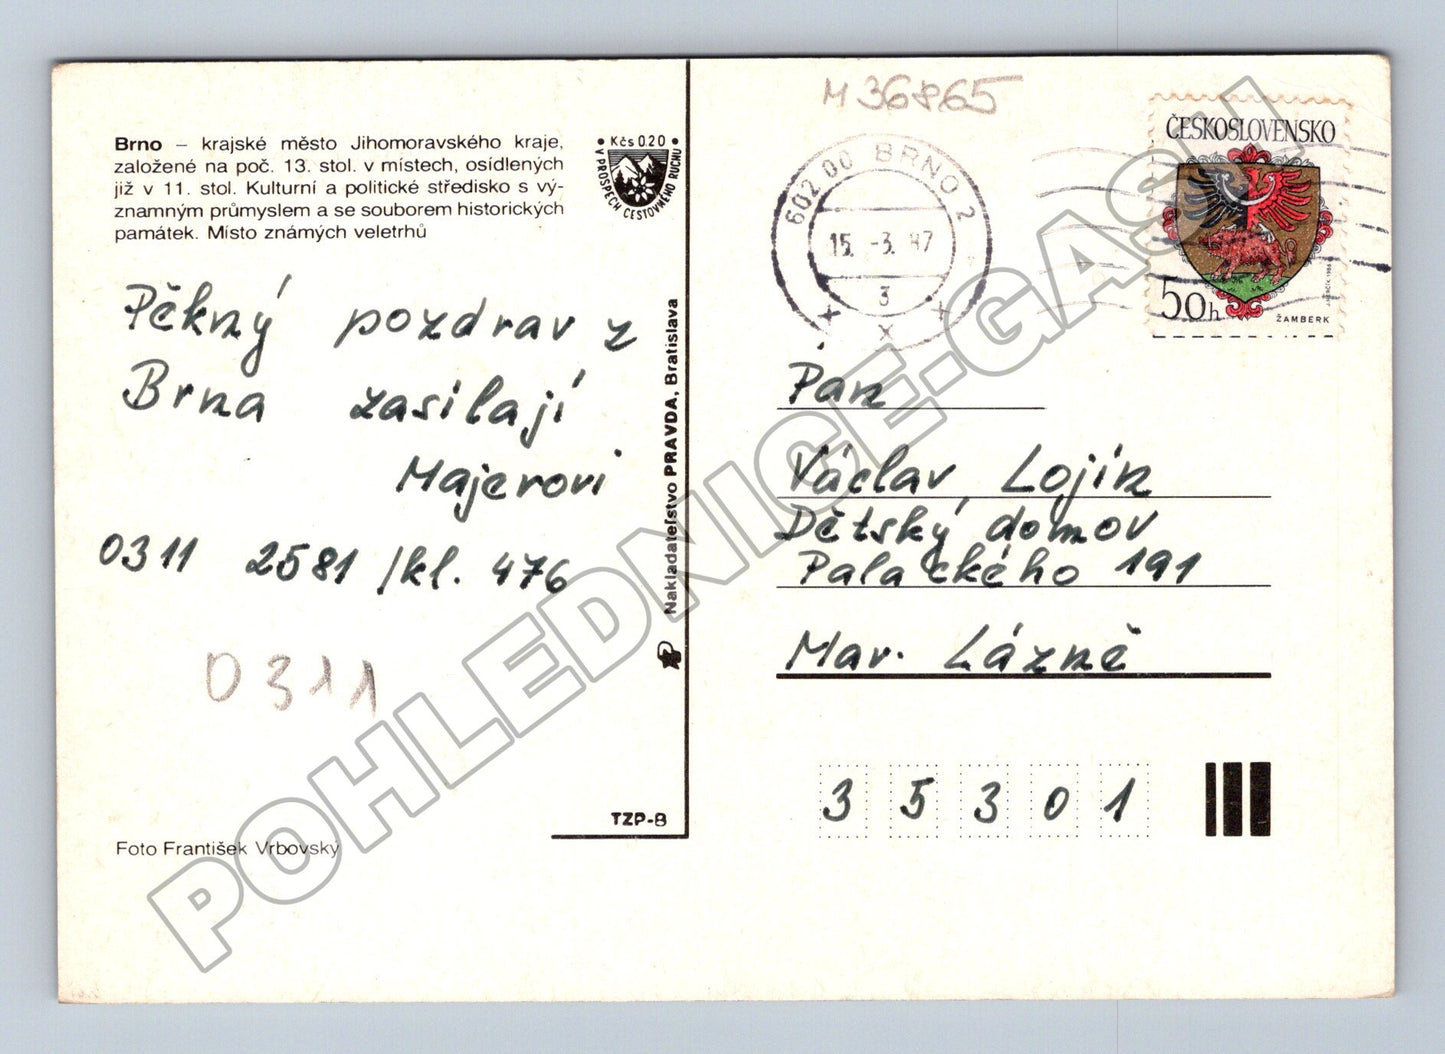 Brno – krajské město Jihomoravského kraje,
založené na poč. 13. stol. v místech, osídlených
již v 11. stol. Kulturní a politické středisko s vý-
znamným průmyslem a se souborem historických
památek. Místo známých veletrhů
Kčs 0.20
V PROSPĚCH CESTOVNÉHO RUCHU
Pěkný pozdrav z
Brna zasílají
Majerovi
0311 2581 /kl. 476
0311
Foto František Vrbovský
TZP-8
Nakladateľstvo PRAVDA, Bratislava
M 36865
602 00 BRNO 2
15. -3. 87
3
ČESKOSLOVENSKO
50h
ŽAMBERK
Pan
Václav Lojín
Dětský domov
Palackého 191
Mar. Lázně
35301
POHLEDNICE-GASU